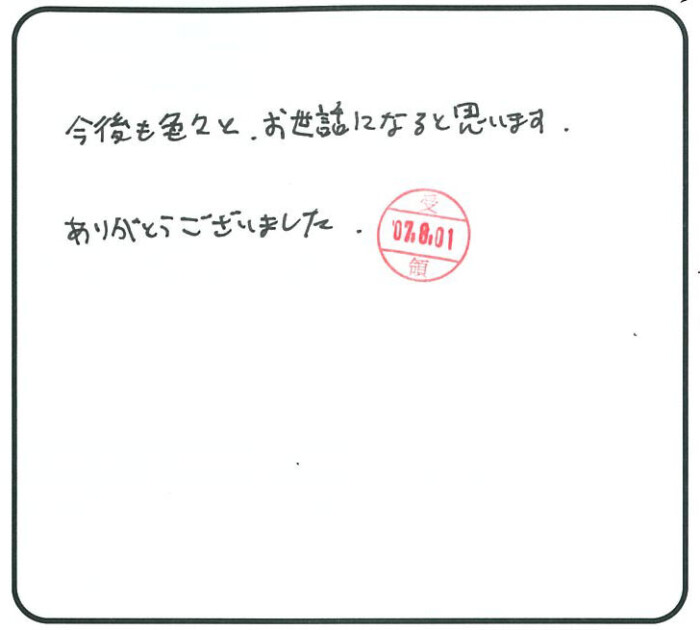 今後も色々と.お世話になると思います.
ありがとうございました.
受
'07.8.01
領